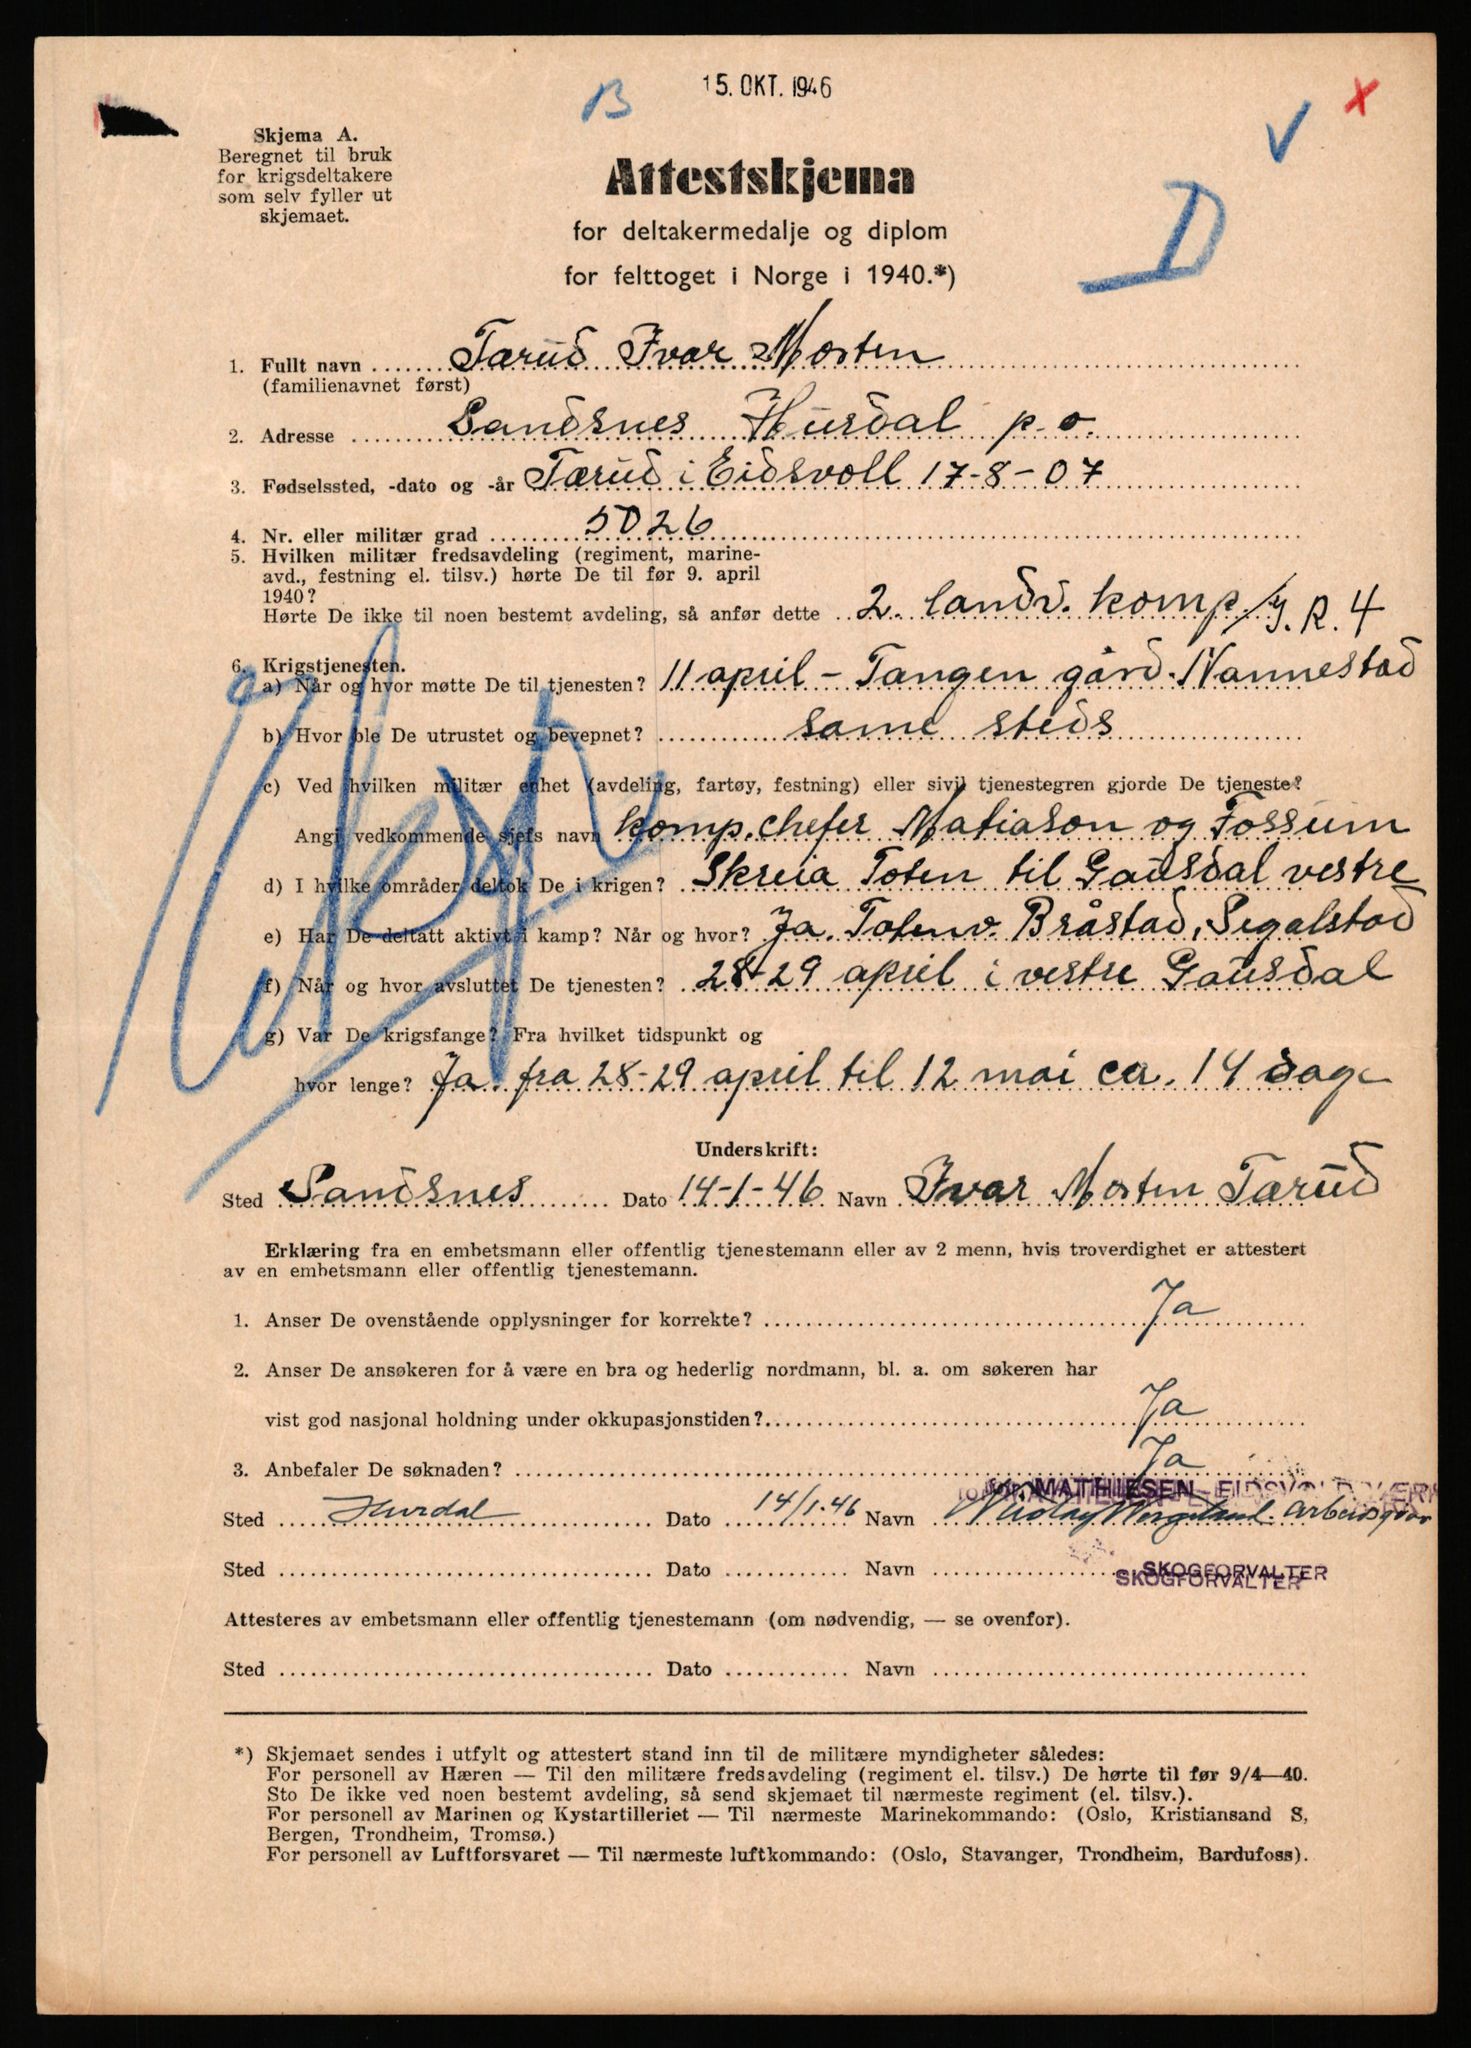 15. OKT. 1946
B
Skjema A.
Beregnet til bruk
for krigsdeltakere
som selv fyller ut
skjemaet.
Attestskjema
for deltakermedalje og diplom
for felttoget i Norge i 1940.*)
D
1. Fullt navn Tærud Ivar Morten
(familienavnet først)
2. Adresse Sandsnes Hurdal p.o.
3. Fødselssted, -dato og -år Tærud i Eidsvoll 17-8-07
4. Nr. eller militær grad 5026
5. Hvilken militær fredsavdeling (regiment, marine-
avd., festning el. tilsv.) hørte De til før 9. april
1940?
Hørte De ikke til noen bestemt avdeling, så anfør dette 2. landv. komp./J.R. 4
6. Krigstjenesten.
a) Når og hvor møtte De til tjenesten? 11 april - Tangen gård. Nannestad
b) Hvor ble De utrustet og bevepnet? same steds
c) Ved hvilken militær enhet (avdeling, fartøy, festning) eller sivil tjenestegren gjorde De tjeneste?
Angi vedkommende sjefs navn komp. chefer Matiason og Fossum
d) I hvilke områder deltok De i krigen? Skreia Toten til Gausdal vestre
e) Har De deltatt aktivt i kamp? Når og hvor? Ja. Totenv. Bråstad, Segalstad
f) Når og hvor avsluttet De tjenesten? 28-29 april i vestre Gausdal
g) Var De krigsfange? Fra hvilket tidspunkt og
hvor lenge? Ja. fra 28-29 april til 12 mai ca. 14 dage
Underskrift:
Sted Sandsnes Dato 14-1-46 Navn Ivar Morten Tærud
Erklæring fra en embetsmann eller offentlig tjenestemann eller av 2 menn, hvis troverdighet er attestert
av en embetsmann eller offentlig tjenestemann.
1. Anser De ovenstående opplysninger for korrekte? Ja
2. Anser De ansøkeren for å være en bra og hederlig nordmann, bl. a. om søkeren har
vist god nasjonal holdning under okkupasjonstiden? Ja
3. Anbefaler De søknaden? Ja
for MATHIESEN - EIDSVOLD VÆRK
Sted Hurdal Dato 14/1.46 Navn Nicolay Wergeland. Arbeidsgiver
Sted Dato Navn
SKOGFORVALTER
SKOGFORVALTER
Attesteres av embetsmann eller offentlig tjenestemann (om nødvendig, — se ovenfor).
Sted Dato Navn
*) Skjemaet sendes i utfylt og attestert stand inn til de militære myndigheter således:
For personell av Hæren — Til den militære fredsavdeling (regiment el. tilsv.) De hørte til før 9/4—40.
Sto De ikke ved noen bestemt avdeling, så send skjemaet til nærmeste regiment (el. tilsv.).
For personell av Marinen og Kystartilleriet — Til nærmeste Marinekommando: (Oslo, Kristiansand S,
Bergen, Trondheim, Tromsø.)
For personell av Luftforsvaret — Til nærmeste luftkommando: (Oslo, Stavanger, Trondheim, Bardufoss).